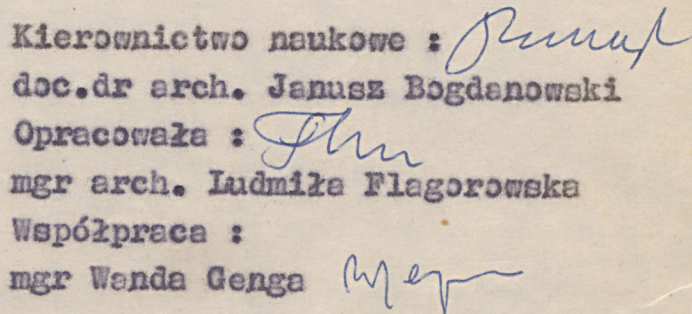 Kierownictwo naukowe :
doc.dr arch. Janusz Bogdanowski
Opracowała :
mgr arch. Ludmiła Flagorowska
Współpraca :
mgr Wanda Genga